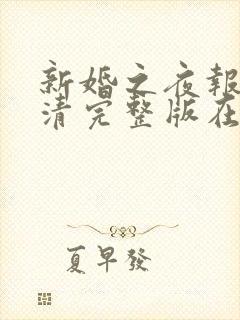 新婚之夜報
清完整版在
夏早發